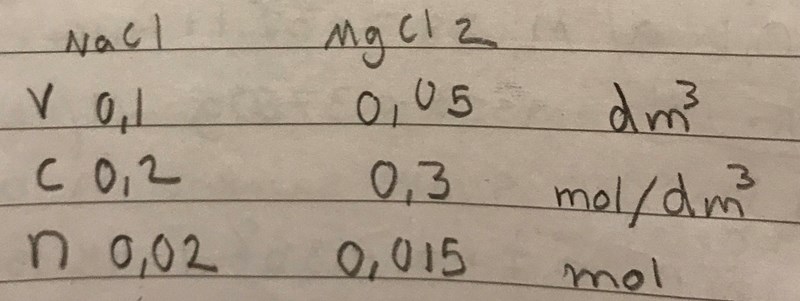 NaCl MgCl2
V 0,1 0,05 dm³
C 0,2 0,3 mol/dm³
n 0,02 0,015 mol